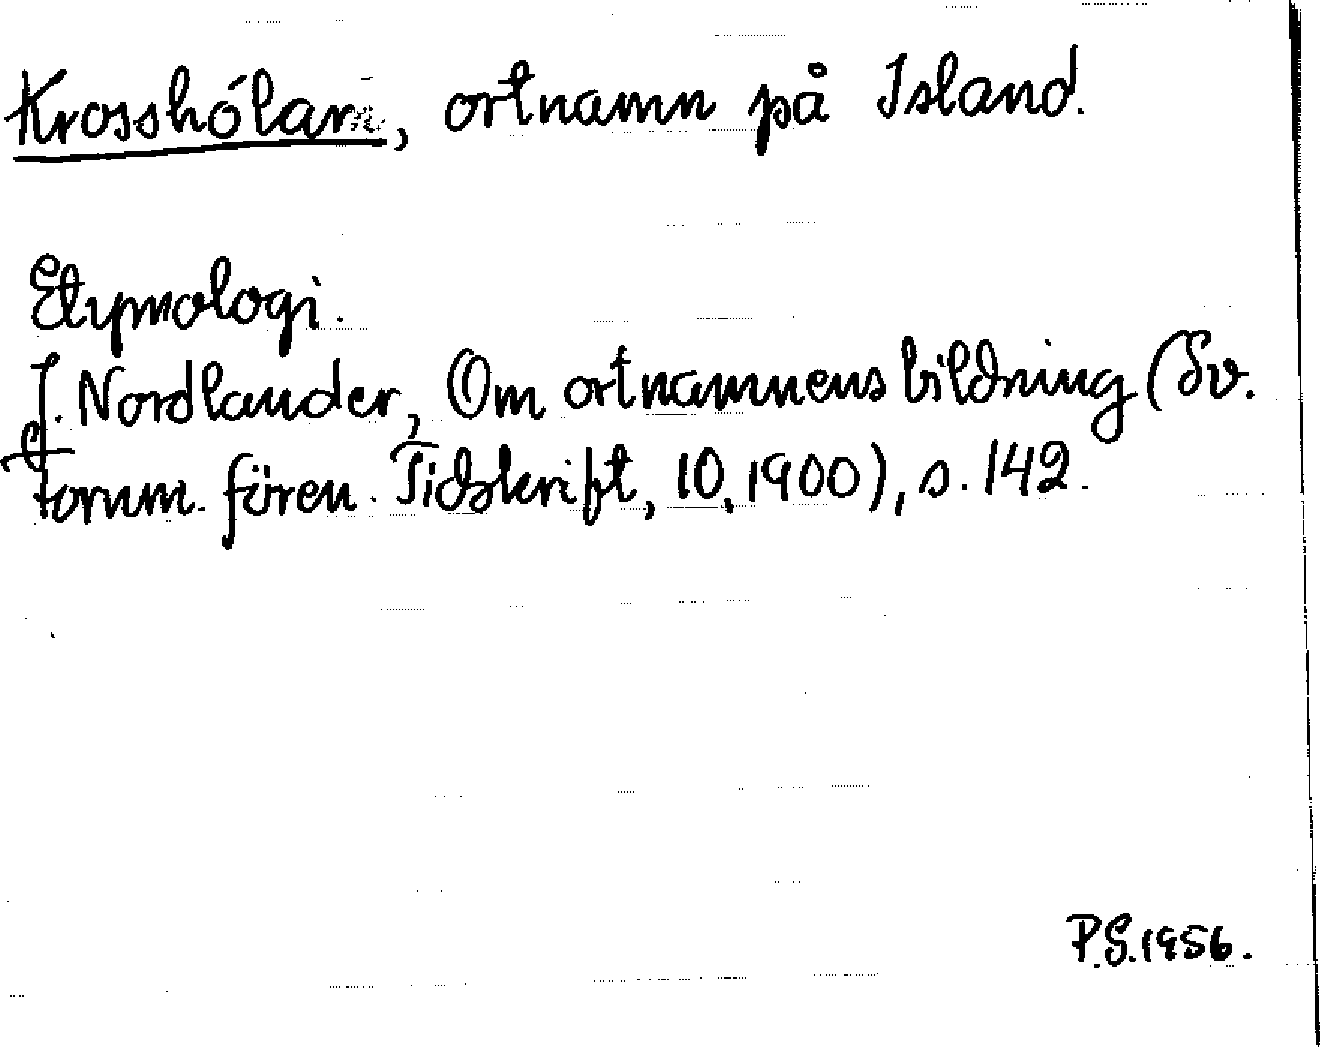 Krosshólar, ortnamn på Island.
Etymologi.
J. Nordlander, Om ortnamnens bildning (Sv.
Fornm. fören. Tidskrift, 10, 1900), s. 142.
P.S. 1956.